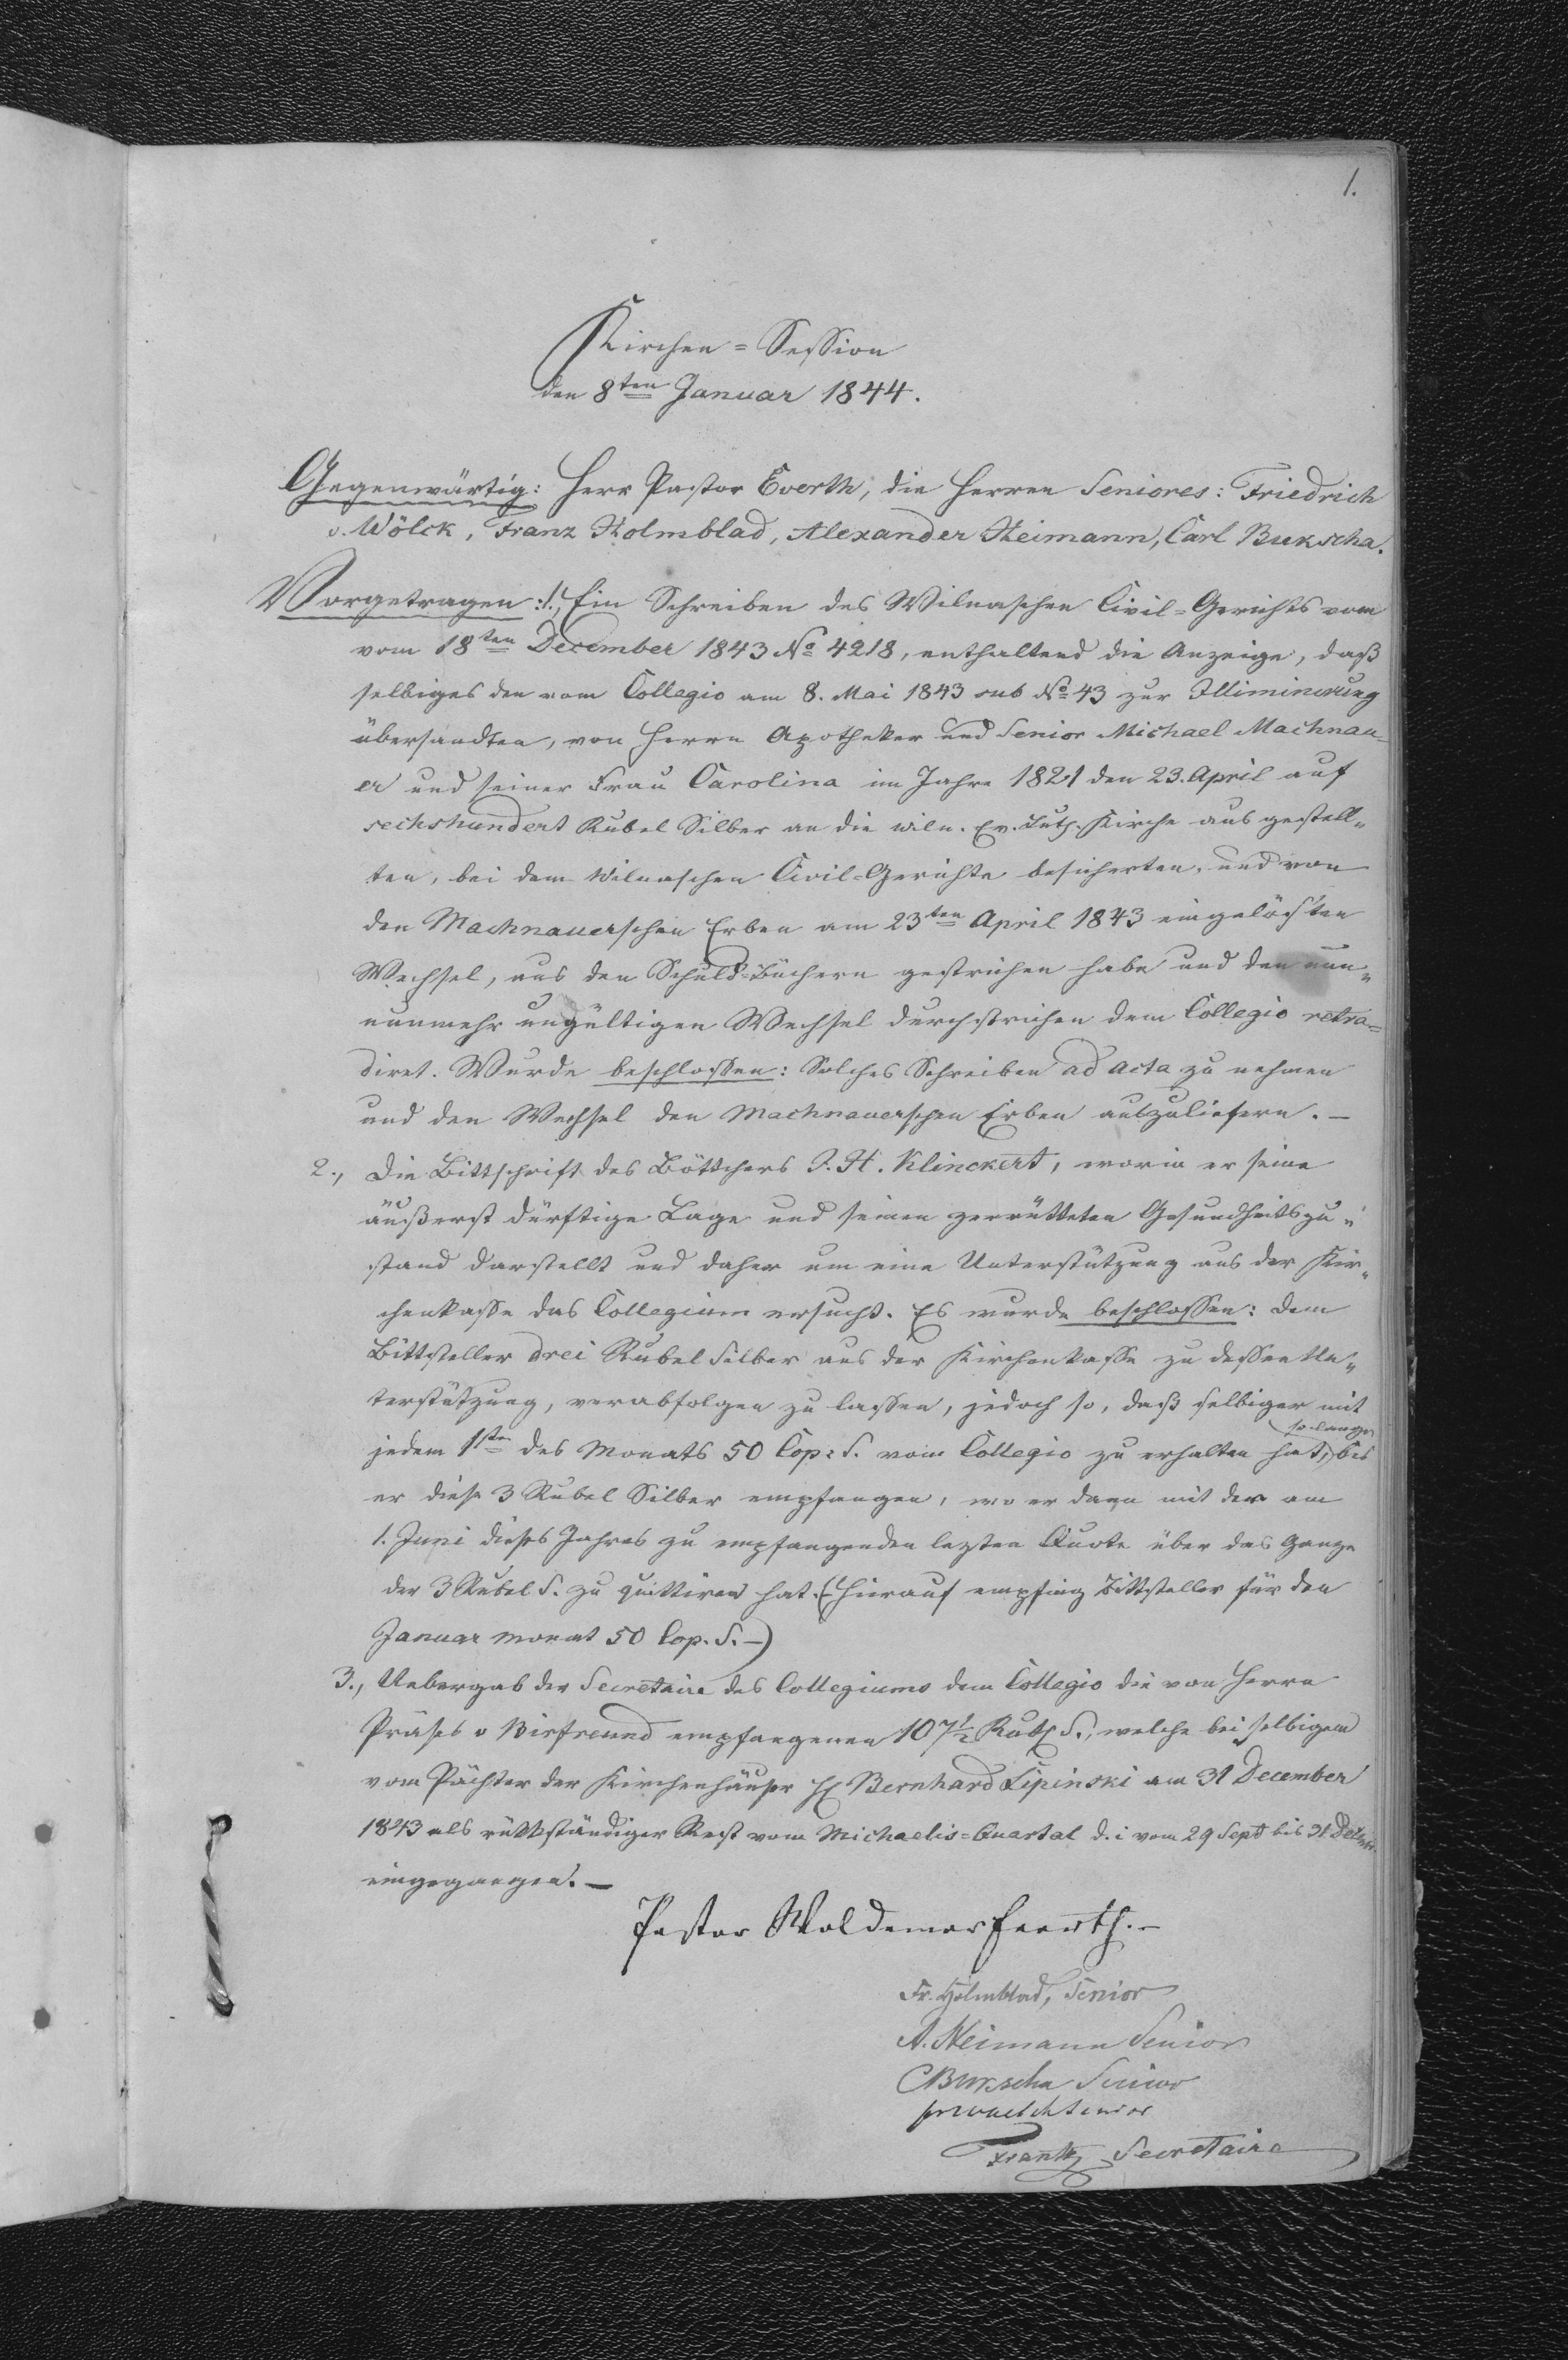 1.
Kirchen=Session
den 8ten Januar 1844.
Gegenwärtig: Herr Pastor Everth, die Herren Seniores: Friedrich
v. Wölck, Franz Holmblad, Alexander Heimann, Carl Bukscha.
Vorgetragen: 1., Ein Schreiben des Wilnaschen Civil=Gerichts vom
vom 18ten December 1843 No 4218, enthaltend die Anzeige, daß
selbiges den vom Collegio am 8. Mai 1843 sub No 43 zur Illiminirung
übersandten, von Herrn Apotheker und Senior Michael Machnau=
er und seiner Frau Carolina im Jahre 1821 den 23. April auf
sechshundert Rubel Silber an die wiln. Ev. Luth. Kirche ausgestell=
ten, bei dem Wilnaschen Civil=Gerichte besicherten, und von
den Machnauerschen Erben am 23ten April 1843 eingelös'ten
Wechsel, aus den Schuld=Büchern gestrichen habe und den nun=
nunmehr ungültigen Wechsel durchstrichen dem Collegio retra=
diret. Wurde beschlossen: Solches Schreiben ad acta zu nehmen
und den Wechsel den Machnauerschen Erben auszuliefern. —
2., Die Bittschrift des Böttchers J. H. Klinckert, worin er seine
äußerst dürftige Lage und seinen zerrütteten Gesundheitszu=
stand darstellt und daher um eine Unterstützung aus der Kir=
chenkasse das Collegium ersucht. Es wurde beschlossen: dem
Bittsteller drei Rubel Silber aus der Kirchenkasse zu dessen Un=
terstützung, verabfolgen zu lassen, jedoch so, daß selbiger mit
jedem 1sten des Monats 50 Cop: S. vom Collegio zu erhalten hat, so lange bis
er diese 3 Rubel Silber empfangen, wo er dann mit der am
1. Juni dieses Jahres zu empfangenden lezten Quote über das Ganze
der 3 Rubel S. zu quittiren hat. (Hierauf empfing Bittsteller für den
Januar monat 50 Cop. S. —)
3., Uebergab der Secretaire des Collegiums dem Collegio die von Herrn
Präses v Birfreund empfangenen 107 1/2 Rub S., welche bei selbigem
vom Pächter der Kirchenhäuser H Bernhard Lipinski am 31 December
1843 als rükkständiger Rest vom Michaelis=Quartal d. i vom 29 Sept bis 31 Decbr
eingegangen. —
Pastor Woldemar Everth. —
Fr. Holmblad, Senior
A. Heimann Senior
C Bukscha Senior
Senior
Frantz Secretaire